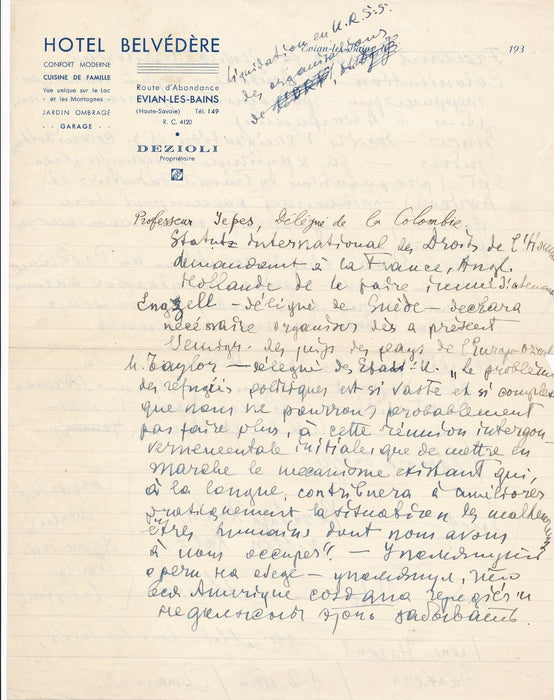 HOTEL BELVÉDÈRE
CONFORT MODERNE
CUISINE DE FAMILLE
Vue unique sur le Lac
et les Montagnes
JARDIN OMBRAGÉ
GARAGE
Route d'Abondance
EVIAN-LES-BAINS
(Haute-Savoie) Tél. 149
R. C. 4120
DEZIOLI
Propriétaire
Evian-les-Bains, le
193
Liquidation en U.R.S.S.
des organisations
de
Professeur Yepes, Délégué de la Colombie.
Statuts international des Droits de l'Homme
demandant à la France, Angl.
Hollande de le faire immédiatement
Engzell - délégué de Suède - déclara
nécessaire organiser dès à présent
l'émigr. des juifs des pays de l'Europe Orient
M. Taylor — délégué des Etats-U. „Le problème
des réfugiés politiques est si vaste et si complexe
que nous ne pourrons probablement
pas faire plus, à cette réunion intergou-
vernementale initiale, que de mettre en
marche le mécanisme existant qui,
à la longue, contribuera à améliorer
pratiquement la situation des malheu
êtres humains dont nous avons
à nous occuper". —
на обеде — упомянул, что
вся Америка создана
не должны этого забывать.